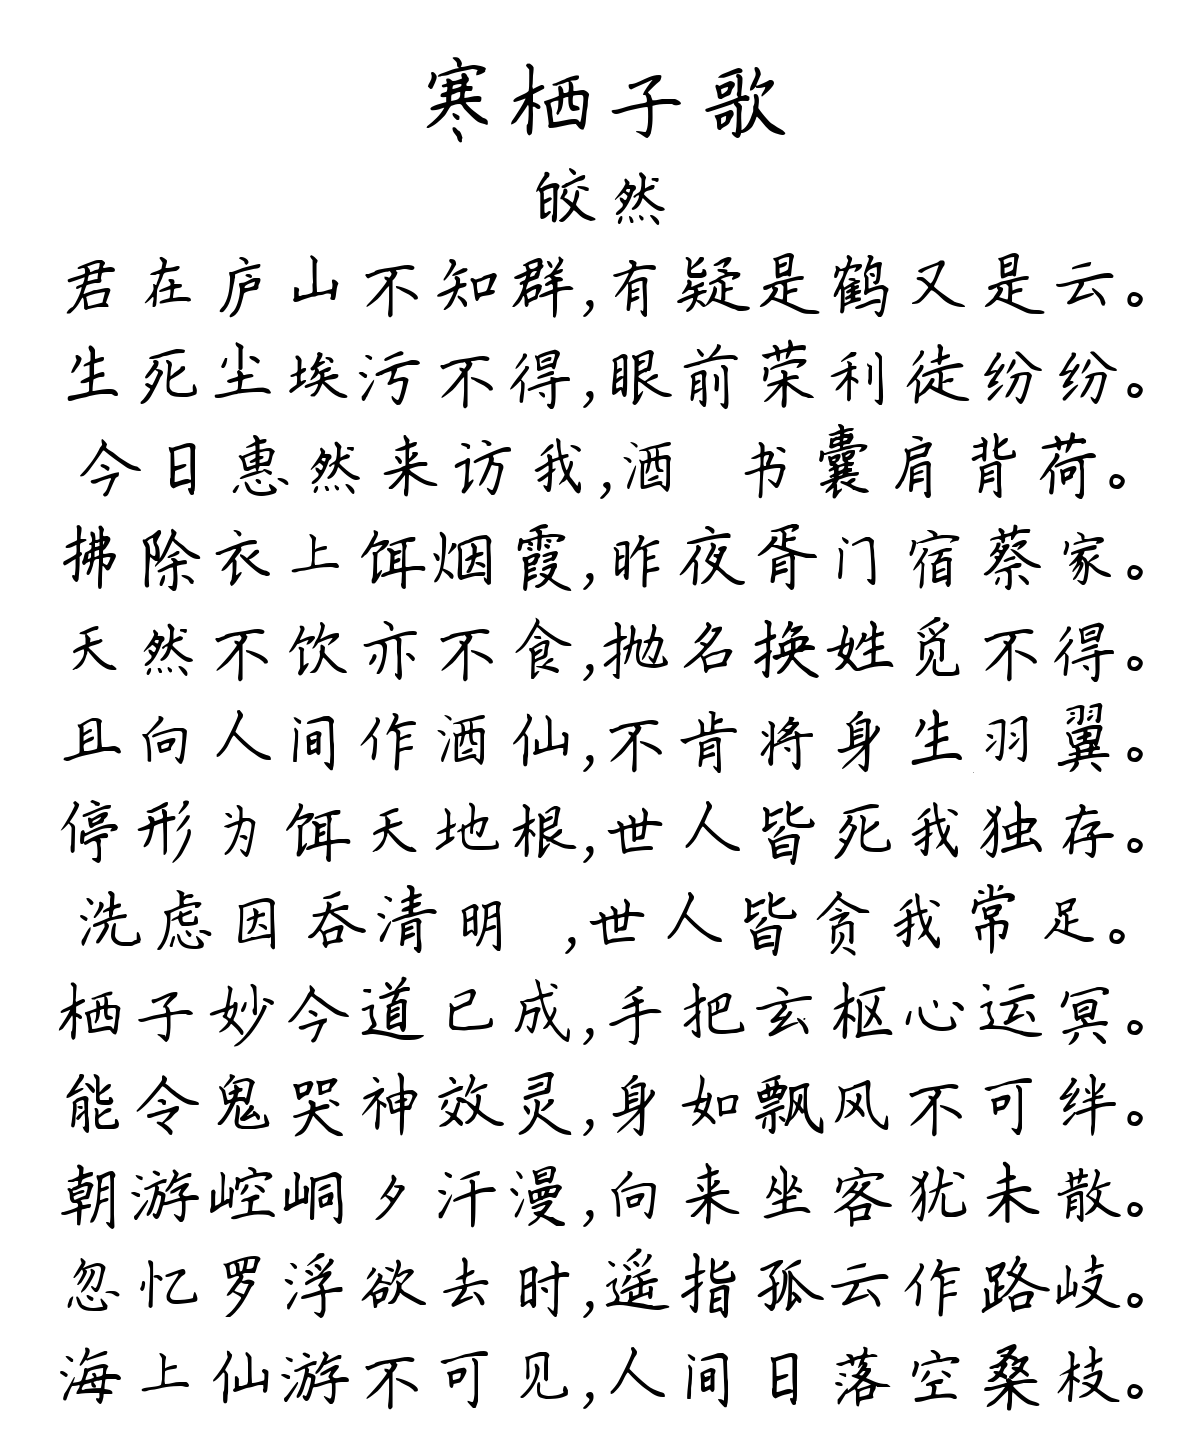 寒栖子歌
皎然
君在庐山不知群,有疑是鹤又是云。
生死尘埃污不得,眼前荣利徒纷纷。
今日惠然来访我,酒 书囊肩背荷。
拂除衣上饵烟霞,昨夜胥门宿蔡家。
天然不饮亦不食,抛名换姓觅不得。
且向人间作酒仙,不肯将身生羽翼。
停形为饵天地根,世人皆死我独存。
洗虑因吞清明 ,世人皆贪我常足。
栖子妙今道已成,手把玄枢心运冥。
能令鬼哭神效灵,身如飘风不可绊。
朝游崆峒夕汗漫,向来坐客犹未散。
忽忆罗浮欲去时,遥指孤云作路岐。
海上仙游不可见,人间日落空桑枝。